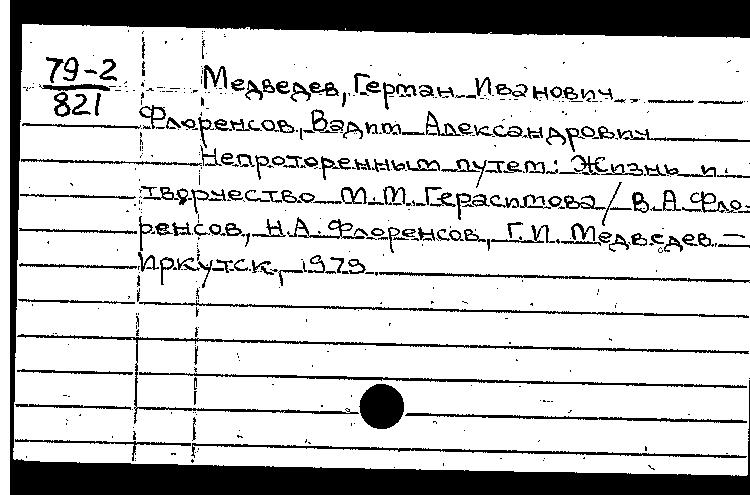 79-2
821
Медведев, Герман Иванович
Флоренсов, Вадим Александрович
Непроторенным путем: Жизнь и
творчество М.М. Герасимова / В.А. Фло-
ренсов, Н.А. Флоренсов, Г.И. Медведев —
Иркутск, 1979